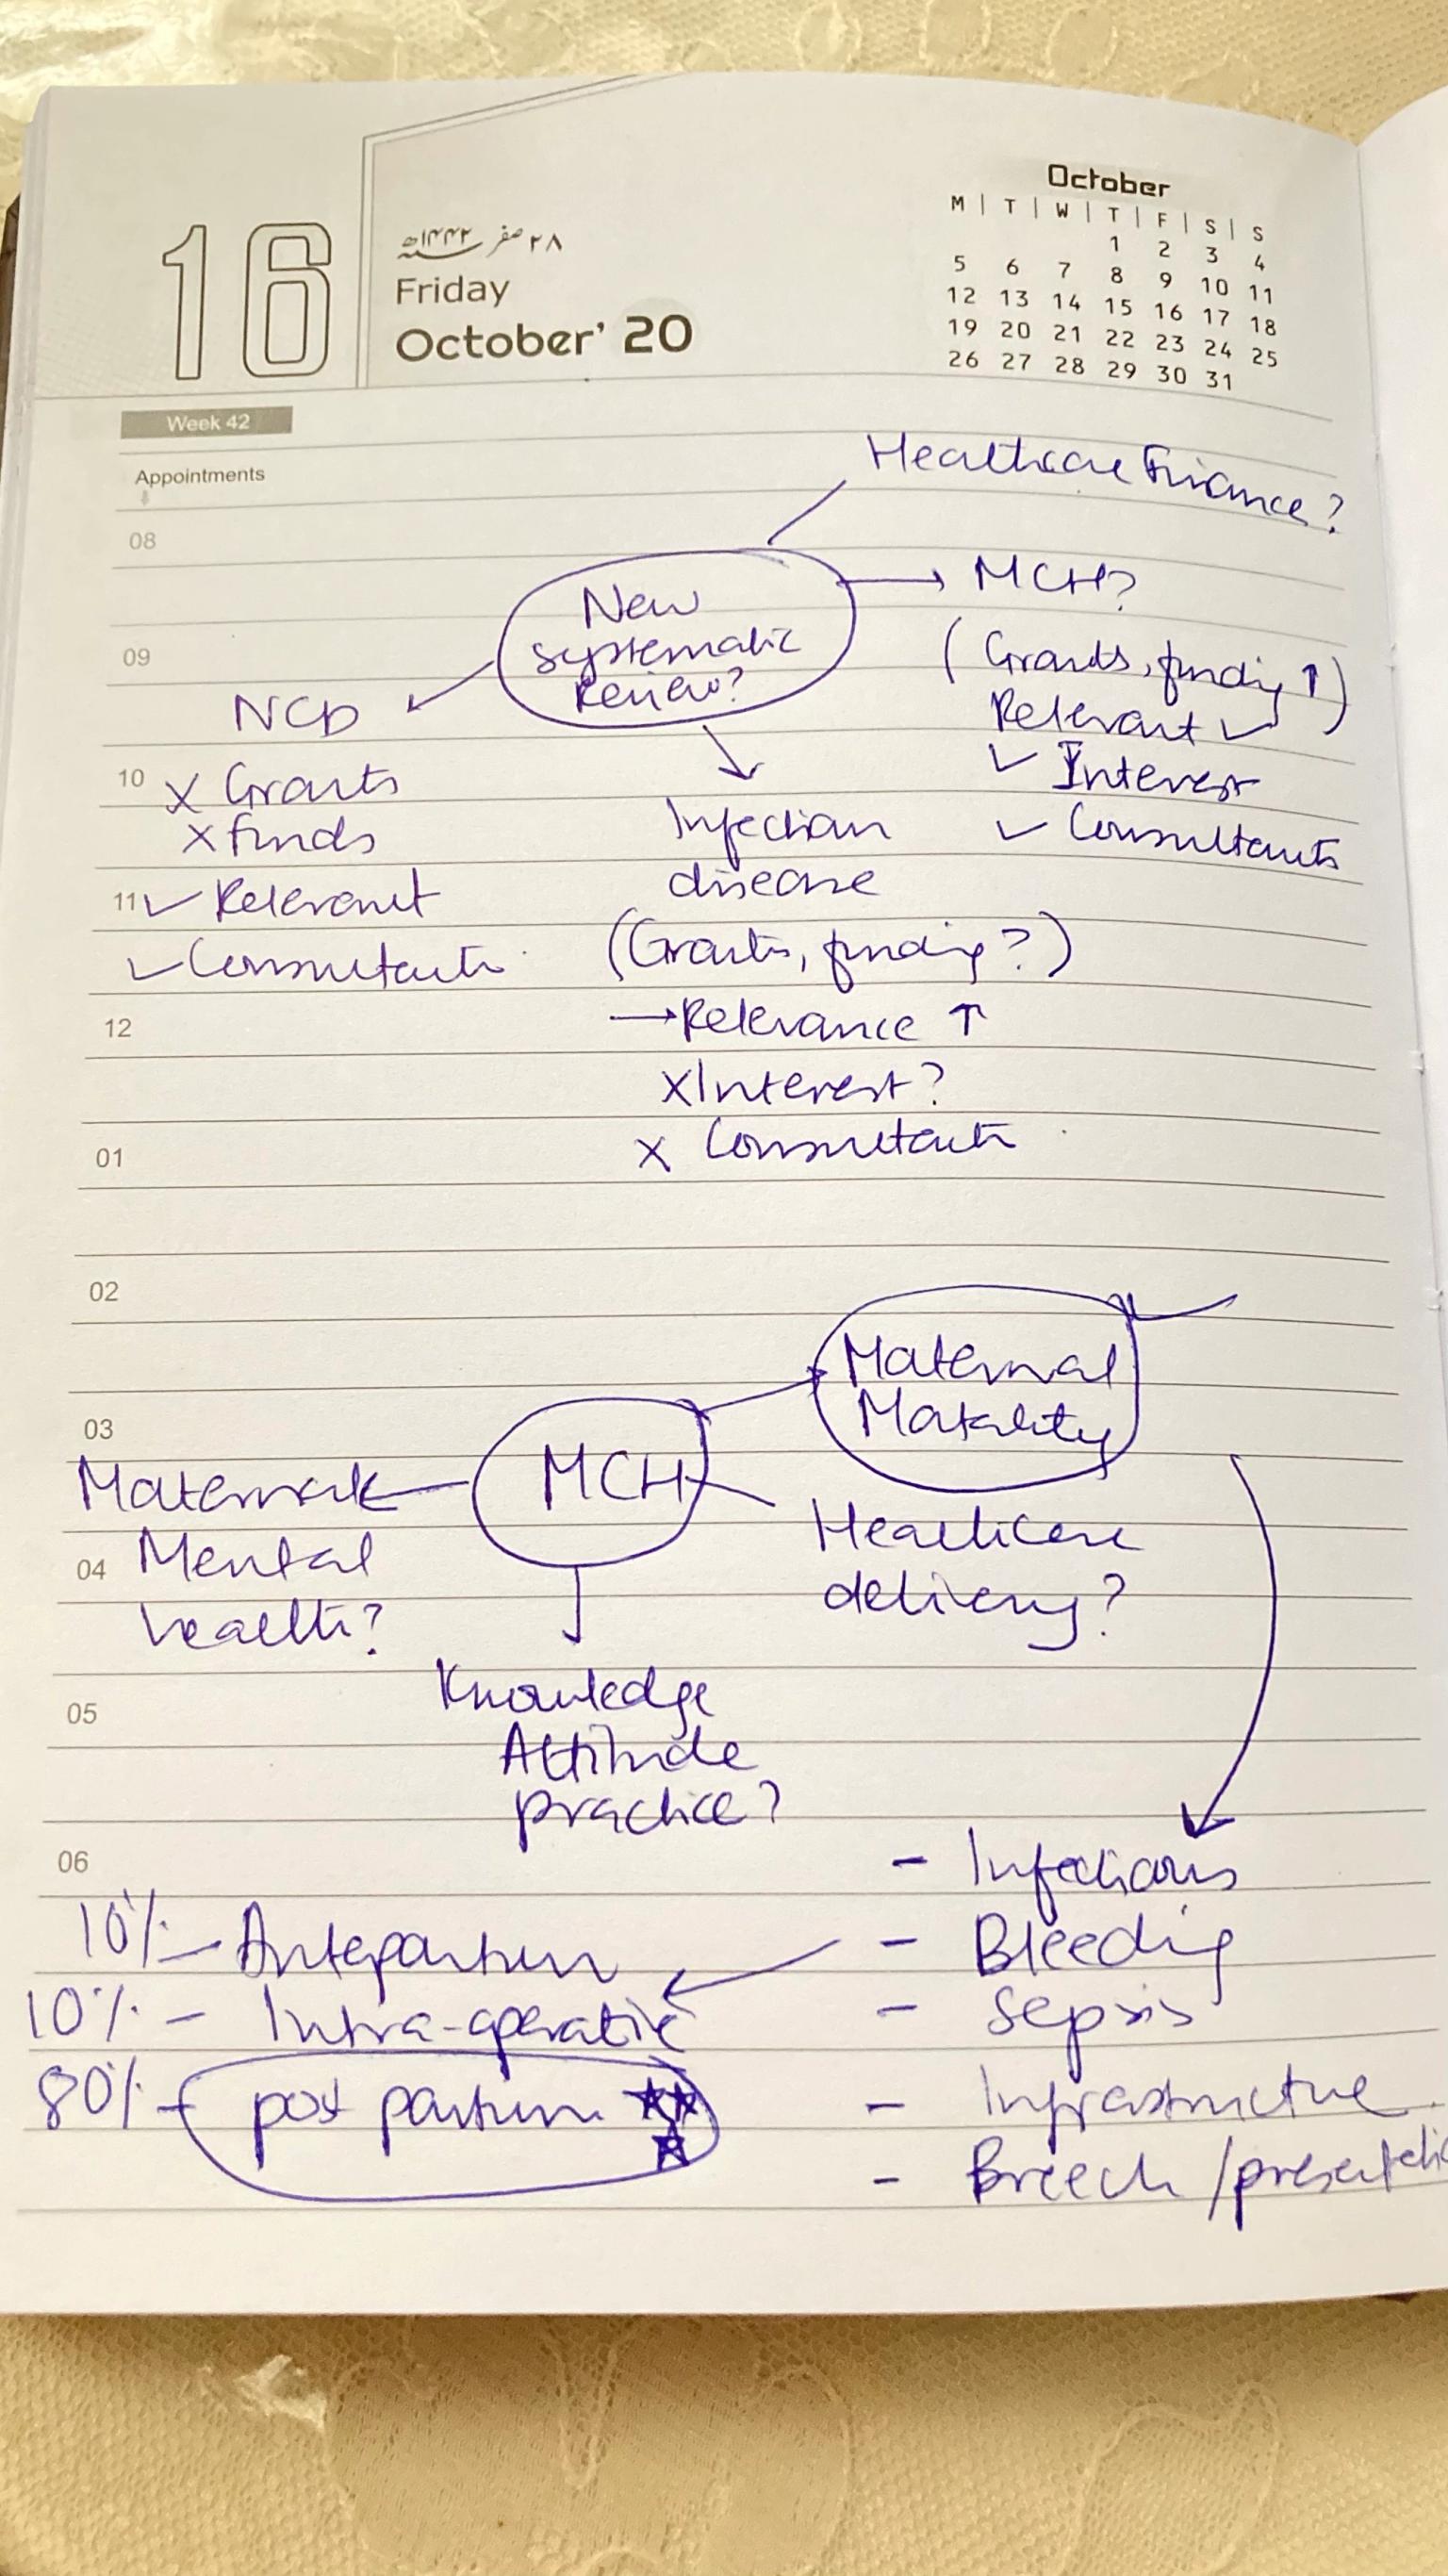 16
۲۸ صفر ۱۴۴۲ھ
Friday
October' 20
October
M | T | W | T | F | S | S
1 2 3 4
5 6 7 8 9 10 11
12 13 14 15 16 17 18
19 20 21 22 23 24 25
26 27 28 29 30 31
Week 42
Appointments
08
Healthcare Finance?
New
systematic
Review?
MCH?
(Grants, funding ↑)
Relevant ✓
✓ Interest
✓ Consultants
09
NCD
10
x Grants
x funds
11
✓ Relevant
✓ Consultants
Infection
disease
(Grants, funding?)
→ Relevance ↑
x Interest?
x Consultants
12
01
02
Maternal
Mortality
03
MCH
Maternal
Mental
health?
04
Healthcare
delivery?
Knowledge
Attitude
practice?
05
06
- Infectious
- Bleeding
- Sepsis
- Infrastructure
- Breech /
10% - Antepartum
10% - Intra-operative
80% - post partum ★★
★